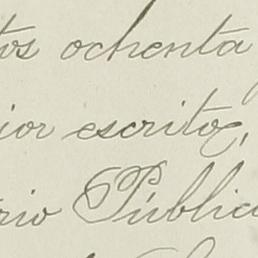 tos ochenta
ior escritos,
rio Públic